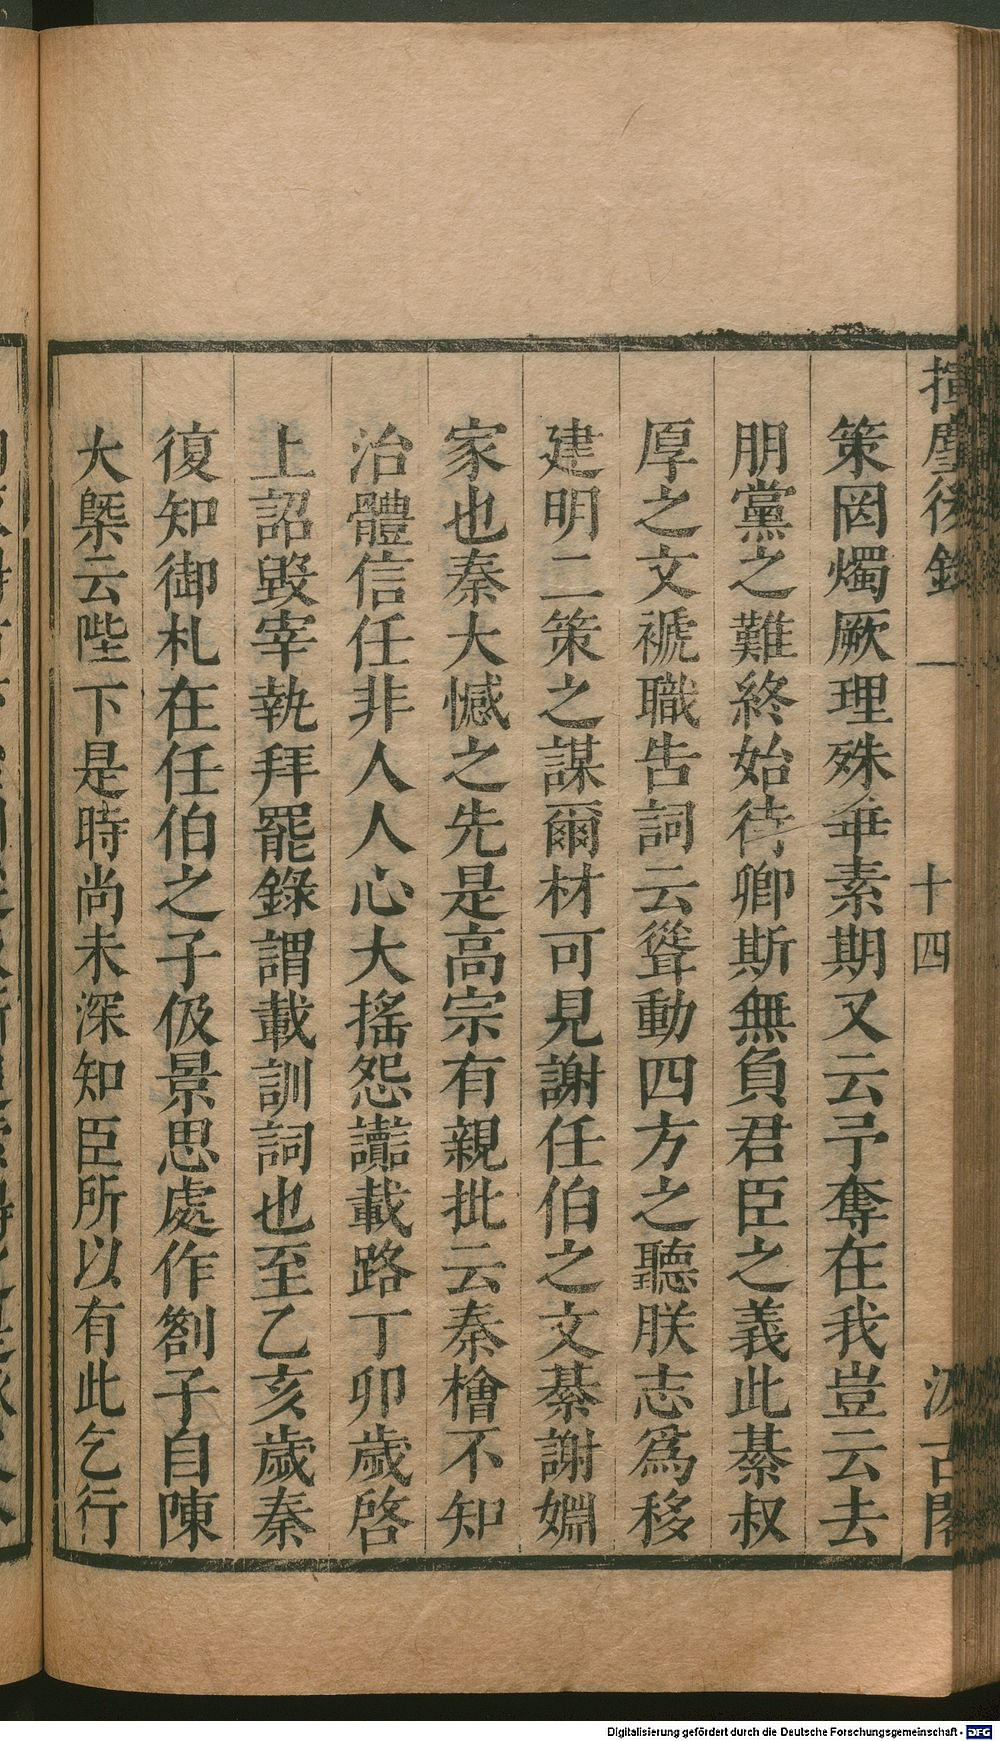 揮麈後錄 一 十四 汲古閣
策罔燭厥理殊乖素期又云予奪在我豈云去
朋黨之難終始待卿斯無負君臣之義此綦叔
厚之文褫職告詞云聳動四方之聽朕志爲移
建明二策之謀爾材可見謝任伯之文綦謝婣
家也秦大憾之先是高宗有親批云秦檜不知
治體信任非人人心大搖怨讟載路丁卯歲啓
上詔毀宰執拜罷錄謂載訓詞也至乙亥歲秦
復知御札在任伯之子伋景思處作劄子自陳
大槩云陛下是時尚未深知臣所以有此乞行
Digitalisierung gefördert durch die Deutsche Forschungsgemeinschaft - DFG